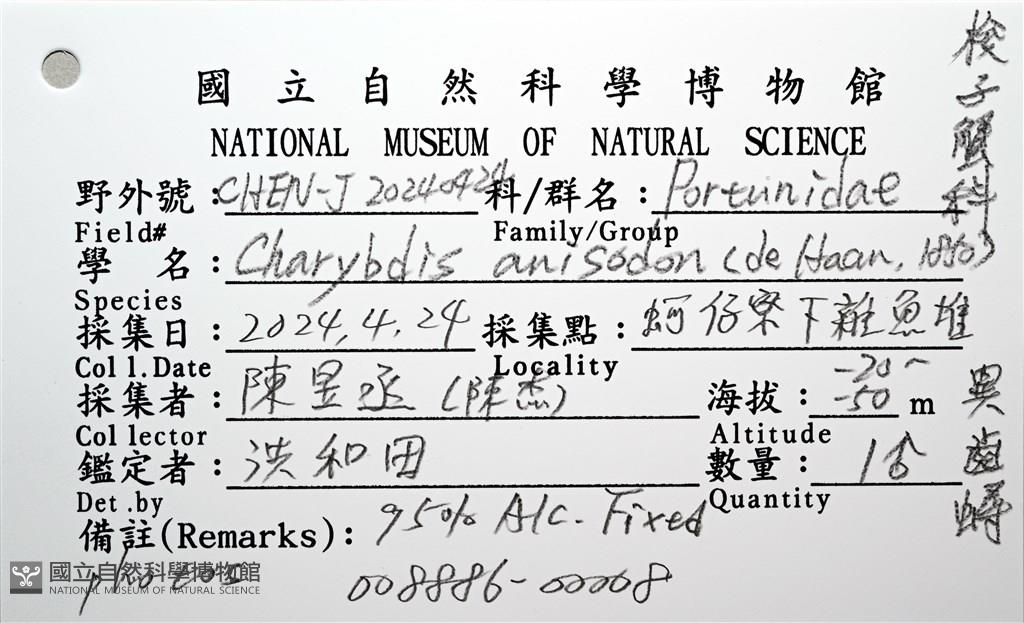 國立自然科學博物館
NATIONAL MUSEUM OF NATURAL SCIENCE
野外號：CHEN-J 20240424 科/群名：Portunidae
Field# Family/Group
學名：Charybdis anisodon (de Haan, 1850)
Species
採集日：2024.4.24 採集點：蚵仔寮下雜魚堆
Coll.Date Locality
採集者：陳昱丞(陳杰) 海拔：-20~-50 m
Collector Altitude
鑑定者：洪和田 數量：1♂
Det.by Quantity
備註(Remarks)：95% Alc. Fixed
photos 008886-00008
梭子蟹科
異齒蟳
國立自然科學博物館
NATIONAL MUSEUM OF NATURAL SCIENCE